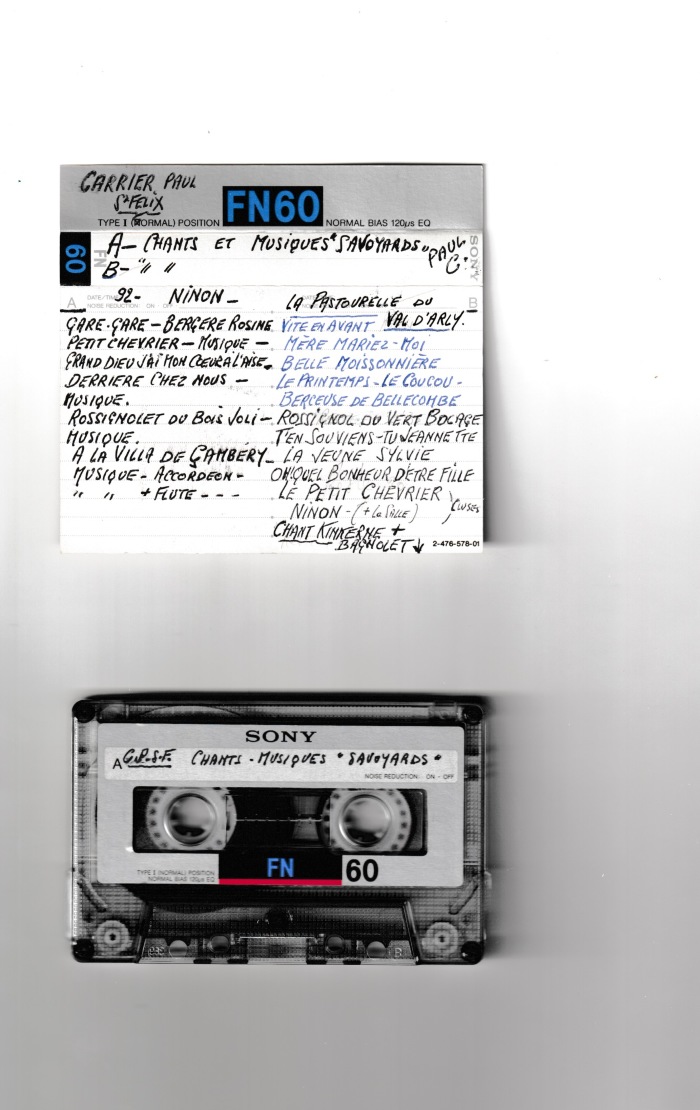 CARRIER PAUL
St FELIX
FN60
TYPE I (NORMAL) POSITION
NORMAL BIAS 120µs EQ
60
FN
A- CHANTS ET MUSIQUES "SAVOYARDS"
PAUL C.
B- "" ""
SONY
A
DATE/TIME
NOISE REDUCTION ON OFF
92- NINON -
B
GARE-GARE - BERGERE ROSINE
PETIT CHEVRIER - MUSIQUE -
GRAND DIEU J'AI MON COEUR A L'AISE -
DERRIERE CHEZ NOUS -
MUSIQUE.
ROSSIGNOLET DU BOIS JOLI -
MUSIQUE.
A LA VILLA DE ÇAMBÉRY -
MUSIQUE - ACCORDEON -
" " + FLUTE - - -
LA PASTOURELLE DU
VAL D'ARLY.
VITE EN AVANT
MÈRE MARIEZ-MOI
BELLE MOISSONNIÈRE
LE PRINTEMPS - LE COUCOU -
BERCEUSE DE BELLECOMBE
ROSSIGNOL DU VERT BOCAGE
T'EN SOUVIENS-TU JEANNETTE
LA JEUNE SYLVIE
OH! QUEL BONHEUR D'ETRE FILLE
LE PETIT CHEVRIER
NINON - (+ La SALLE)
CLUSES
CHANT KINKERNE +
BAGNOLET ↓
2-476-578-01
SONY
A G.P.S.F. CHANTS - MUSIQUES "SAVOYARDS"
NOISE REDUCTION: ON - OFF
TYPE I (NORMAL) POSITION
NORMAL BIAS 120µs EQ
FN
60